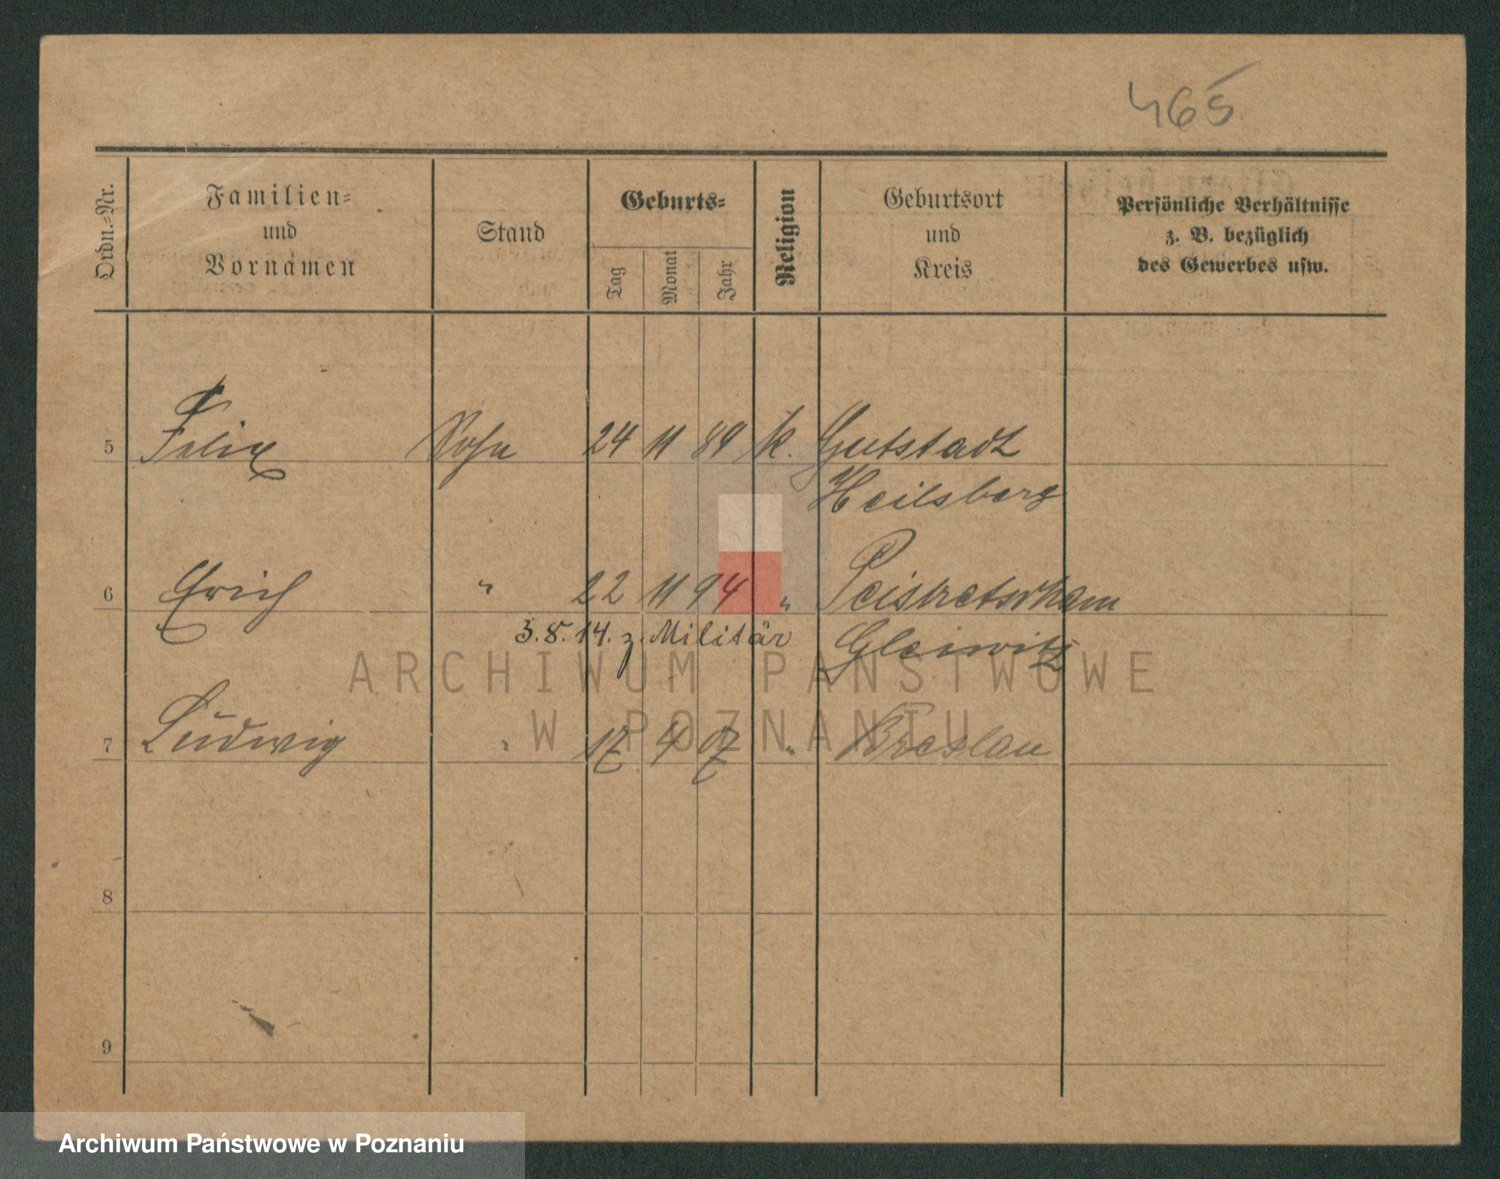 465
Ordn.-Nr.
Familien-
und
Vornamen
Stand
Geburts-
Tag
Monat
Jahr
Religion
Geburtsort
und
Kreis
Persönliche Verhältnisse
z. B. bezüglich
des Gewerbes usw.
5 Felix Sohn 24 11 89 k. Gutstadt
Heilsberg
6 Erich " 22 11 94 " Peiskretscham
3.8.14. z. Militär Gleiwitz
7 Ludwig " 17 4 07 " Breslau
8
9
ARCHIWUM PAŃSTWOWE
W POZNANIU
Archiwum Państwowe w Poznaniu